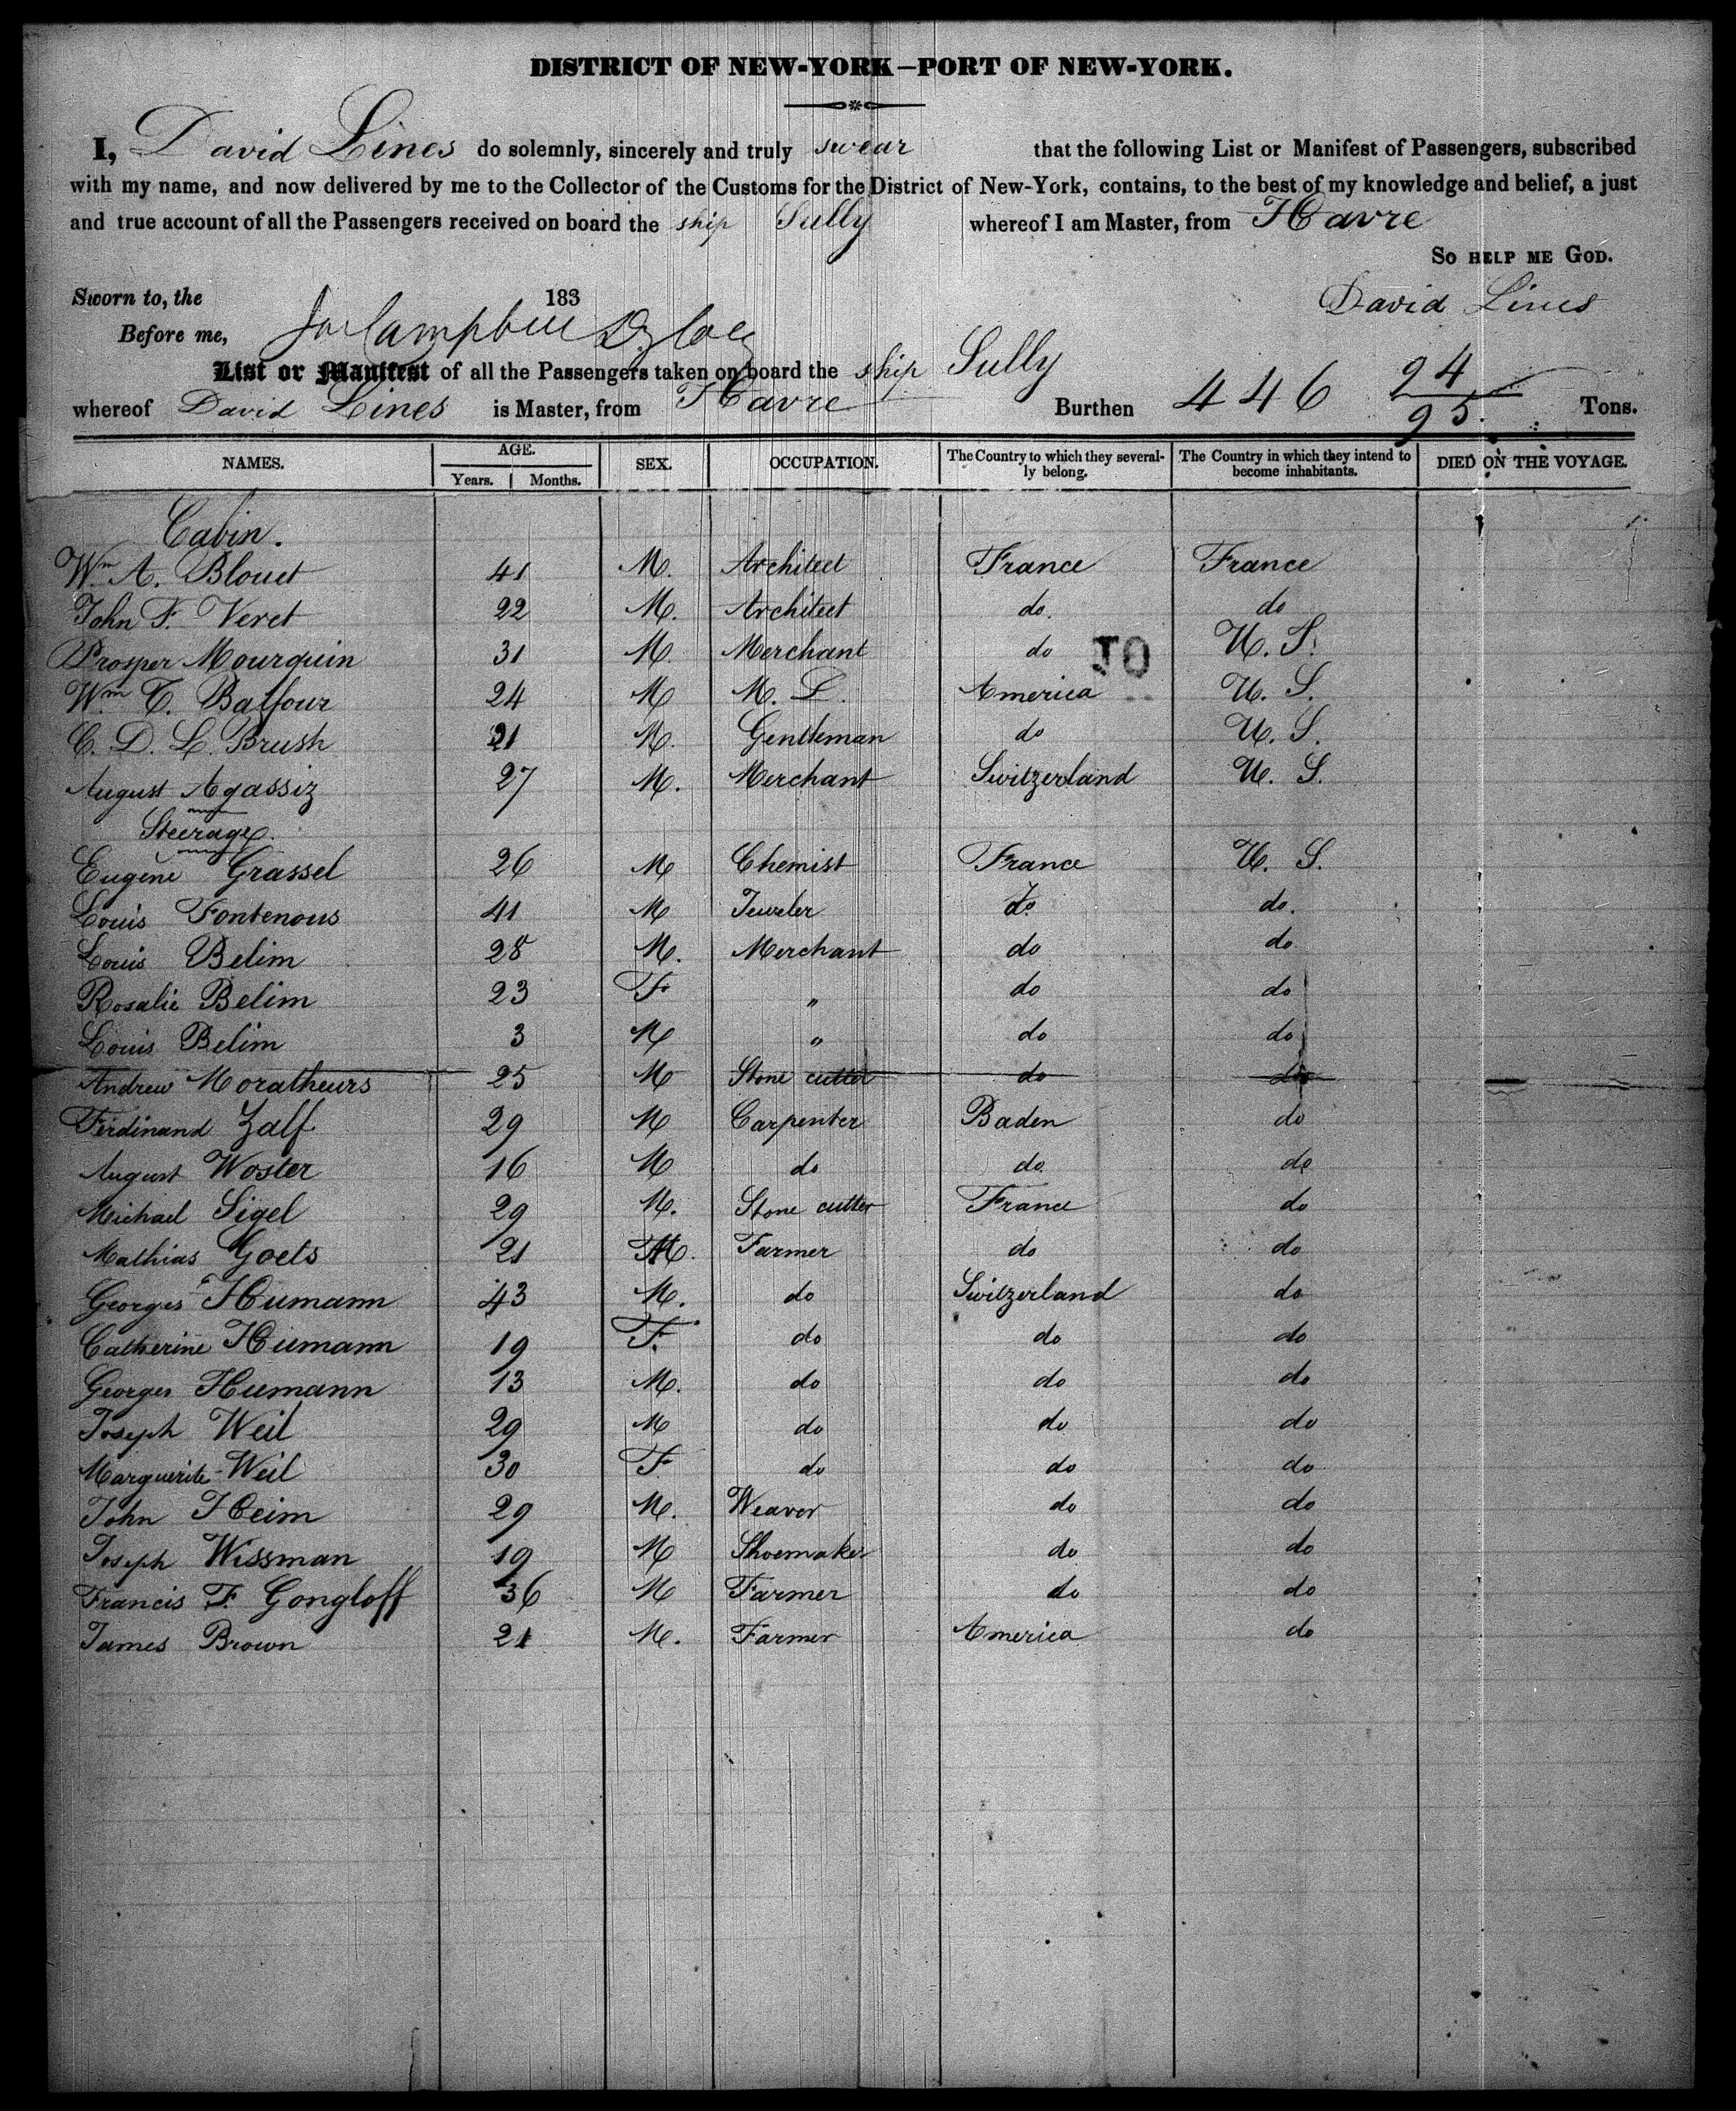 DISTRICT OF NEW-YORK—PORT OF NEW-YORK.
I, David Lines do solemnly, sincerely and truly swear that the following List or Manifest of Passengers, subscribed
with my name, and now delivered by me to the Collector of the Customs for the District of New-York, contains, to the best of my knowledge and belief, a just
and true account of all the Passengers received on board the ship Sully whereof I am Master, from Havre
So HELP ME GOD.
Sworn to, the 183 David Lines
Before me, Campbell
List or Manifest of all the Passengers taken on board the ship Sully
whereof David Lines is Master, from Havre Burthen 446 24/95 Tons.
NAMES. AGE. Years. Months. SEX. OCCUPATION. The Country to which they severally belong. The Country in which they intend to become inhabitants. DIED ON THE VOYAGE.
Cabin.
Wm A. Blouet 41 M. Architect France France
John F. Veret 22 M. Architect do. do
Prosper Mourquin 31 M. Merchant do U. S.
Wm T. Balfour 24 M America U. S.
C. D. L. Brush 21 M. Gentleman do U. S.
August Agassiz 27 M. Merchant Switzerland U. S.
Steerage.
Eugene Grassel 26 M Chemist France U. S.
Louis Fontenous 41 M Jeweler do do.
Louis Belim 28 M. Merchant do do
Rosalie Belim 23 F " do do
Louis Belim 3 M " do do
Andrew Moratheurs 25 M Stone cutter do do
Ferdinand Zalf 29 M Carpenter Baden do
August Woster 16 M do do do
Michael Sigel 29 M. Stone cutter France do
Mathias Goets 21 M. Farmer do do
Georges Humann 43 M. do Switzerland do
Catherine Humann 19 F. do do do
Georges Humann 13 M. do do do
Joseph Weil 29 M do do do
Marguerite Weil 30 F do do do
John Heim 29 M. Weaver do do
Joseph Wissman 19 M Shoemaker do do
Francis F. Gongloff 36 M Farmer do do
James Brown 21 M. Farmer America do